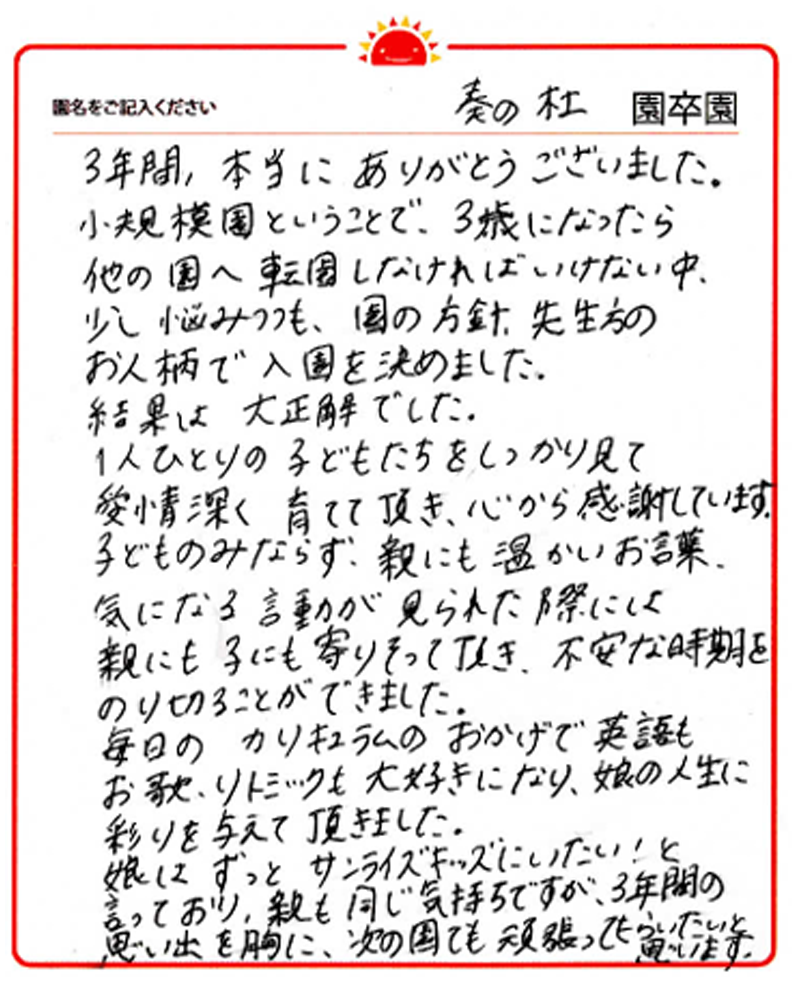 園名をご記入ください 奏の杜 園卒園
3年間, 本当に ありがとうございました。
小規模園ということで、3歳になったら
他の園へ 転園しなければいけない中、
少し 悩みつつも、園の方針、先生方の
お人柄で 入園を決めました。
結果は 大正解でした。
1人ひとりの子どもたちをしっかり見て
愛情深く 育てて頂き、心から感謝しています。
子どものみならず、親にも温かいお言葉、
気になる言動が 見られた際には
親にも子にも寄りそって頂き、不安な時期を
のり切ることができました。
毎日の カリキュラムの おかげで英語も
お歌、リトミックも 大好きになり、娘の人生に
彩りを与えて 頂きました。
娘は ずっと サンライズキッズにいたい！と
言っており, 親も同じ気持ちですが、3年間の
思い出を胸に、次の園でも 頑張ってもらいたいと
思います。